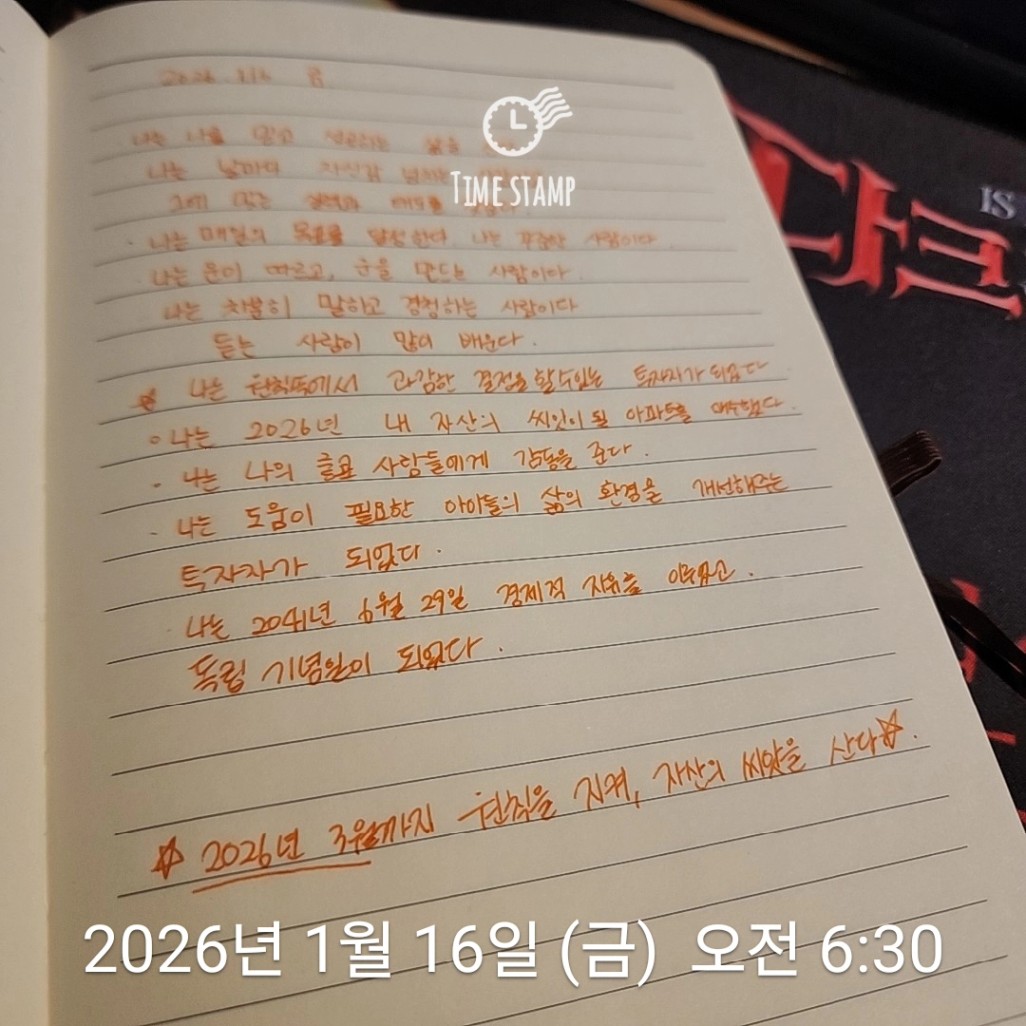 2026. 1.16 금
TIME STAMP
나는 나를 믿고 성공하는 삶을
나는 날마다 자신감 넘치는
그에 맞는 실력과 태도를
· 나는 매일의 목표를 달성한다. 나는 꾸준한 사람이다
· 나는 운이 따르고, 운을 만드는 사람이다.
나는 차분히 말하고 경청하는 사람이다
듣는 사람이 많이 배운다.
나는 원칙 과감한 결정을 할 수 있는 투자자가 되었다
나는 2026년 내 자산의 씨앗이 될 아파트를 매수했다.
· 나는 나의 글로 사람들에게 감동을 준다.
· 나는 도움이 필요한 아이들의 삶의 환경을 개선해주는
투자자가 되었다.
· 나는 2041년 6월 29일 경제적 자유를 이루었고.
독립 기념일이 되었다.
☆ 2026년 3월까지 원칙을 지켜, 자산의 씨앗을 산다☆.
2026년 1월 16일 (금) 오전 6:30
다크
IS